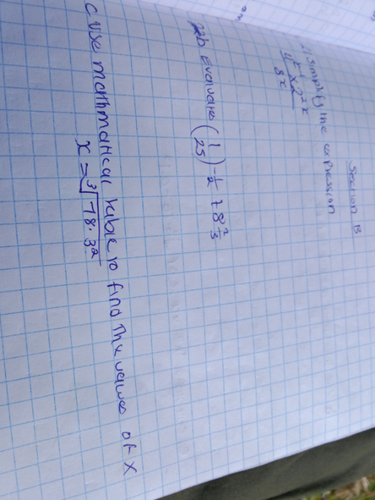 Section B
Simplify the expression
b Evaluate (1/25)^-1/2 + 8^2/3
c Use mathmatical table to find The values of x
x = ∛78.3²